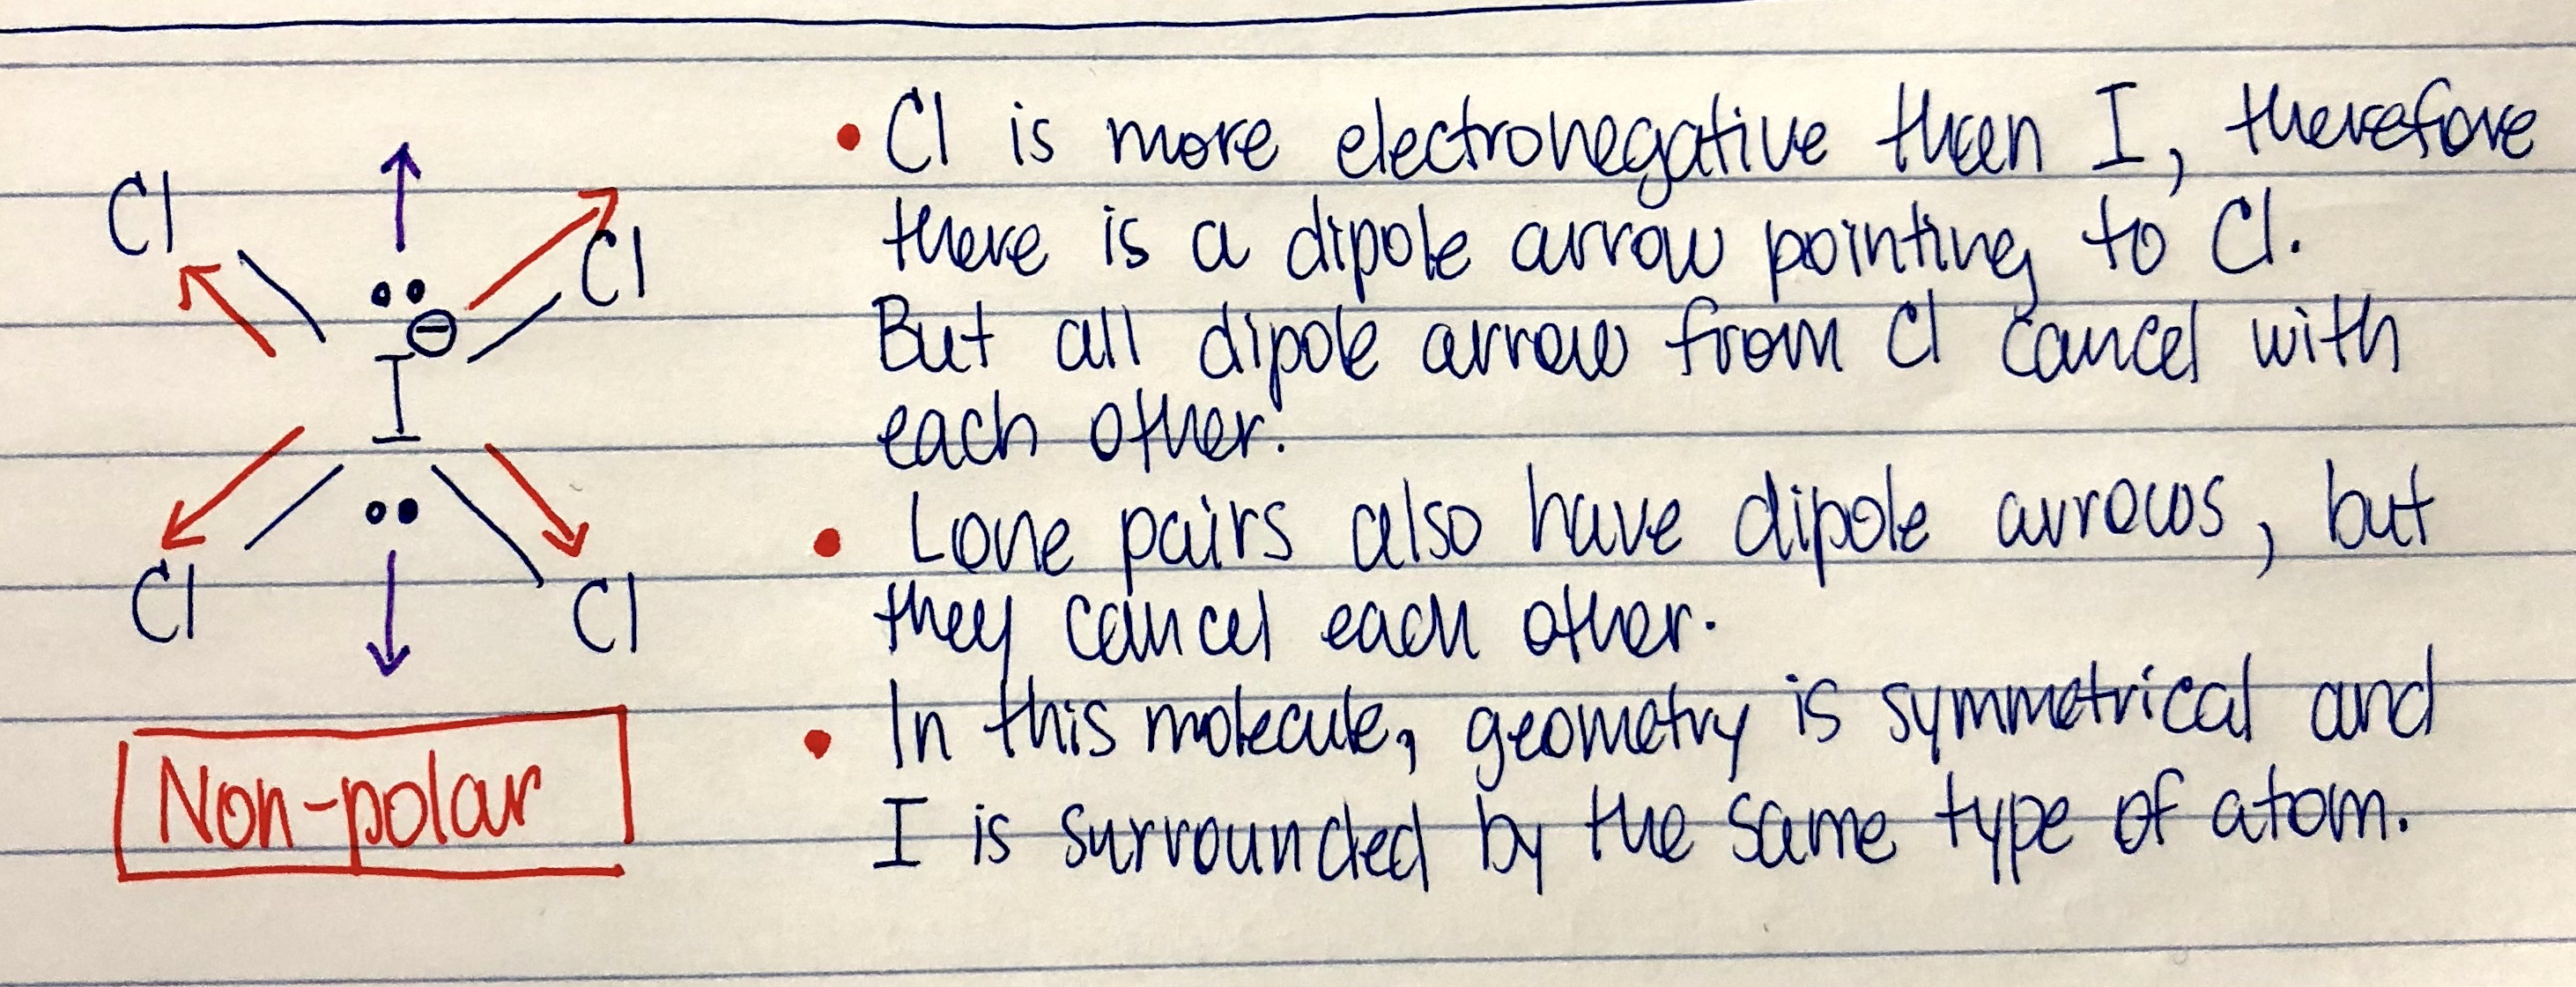 Cl
Cl
⊖
I
Cl
Cl
Non-polar
• Cl is more electronegative then I, therefore
there is a dipole arrow pointing to Cl.
But all dipole arrow from Cl cancel with
each other.
• Lone pairs also have dipole arrows, but
they cancel each other.
• In this molecule, geometry is symmetrical and
I is surrounded by the same type of atom.